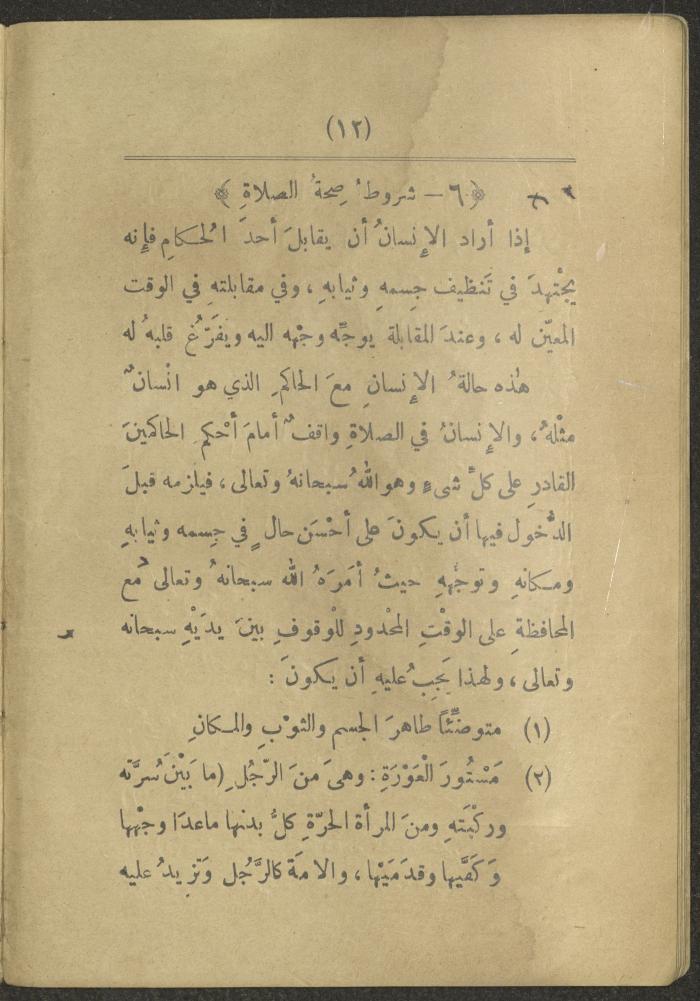 (١٢)
﴿ ٦ – شروطُ صِحةُ الصلاةِ ﴾
إذا أراد الإنسانُ أن يقابلَ أحدَ الْحكامِ فإنه
يجْتهدَ في تَنظيف جِسمهِ وثيابهِ ، وفي مقابلتهِ في الوقت
المعيّن له ، وعندَ المقابلة يوجِّه وجْهه اليه ويفَرّغُ قلبهُ له
هٰذه حالةُ الإنسانِ معَ الحاكمِ الذي هو انْسانٌ
مثْلهُ ، والإنسانُ في الصلاةِ واقفٌ أمامَ أحْكمِ الحاكمينَ
القادرِ على كلِّ شىءٍ وهو اللهُ سبحانهُ وتعالى ، فيلزمه قبلَ
الدُّخول فيها أن يكونَ على أحْسَن حالٍ في جِسمه وثيابهِ
ومكانهِ وتوجُّههِ حيثُ أمَرَهُ الله سبحانهُ وتعالى مع
المحافظةِ على الوقْتِ المحْدودِ للْوقوفِ بينَ يدَيْهِ سبحانه
وتعالى ، ولهذا يَجِبُ عليهِ أن يكونَ :
(١) متوضّئًا طاهرَ الجسم والثوْبِ والمكانِ
(٢) مَسْتُورَ الْعَوْرَةِ : وهىَ منَ الرّجُلِ (ما بَيْنَ سُرَّته
وركْبَتهِ ومنَ المرأة الحرّةِ كلُّ بدنها ماعدَا وجْهها
وَكَفَّيها وقدَمَيْها ، والامةَ كالرَّجُل وَتزيدُ عليه